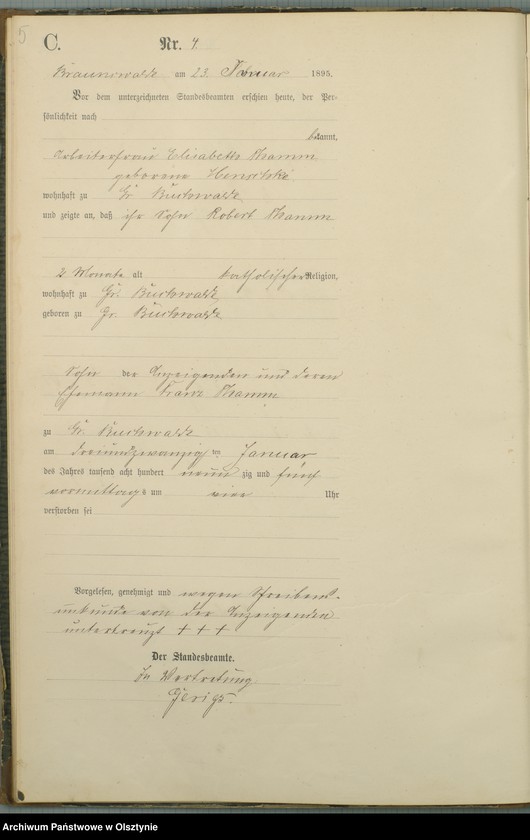 5
C.
Nr. 4.
Braunswalde am 23. Januar 1895.
Vor dem unterzeichneten Standesbeamten erschien heute, der Per-
sönlichkeit nach
bekannt,
Arbeiterfrau Elisabeth Thamm
geborene
wohnhaft zu Gr. Buchwalde
und zeigte an, daß ihr Sohn Robert Thamm
2 Monate alt katholischer Religion,
wohnhaft zu Gr. Buchwalde
geboren zu Gr. Buchwalde
Sohn der Anzeigenden und deren
Ehemann Franz Thamm
zu Gr. Buchwalde
am dreiundzwanzig ten Januar
des Jahres tausend acht hundert neun zig und fünf
vormittags um vier Uhr
verstorben sei
Vorgelesen, genehmigt und wegen Schreibens-
unkunde von der Anzeigenden
unterkreuzt + + +
Der Standesbeamte.
In Vertretung.
Archiwum Państwowe w Olsztynie